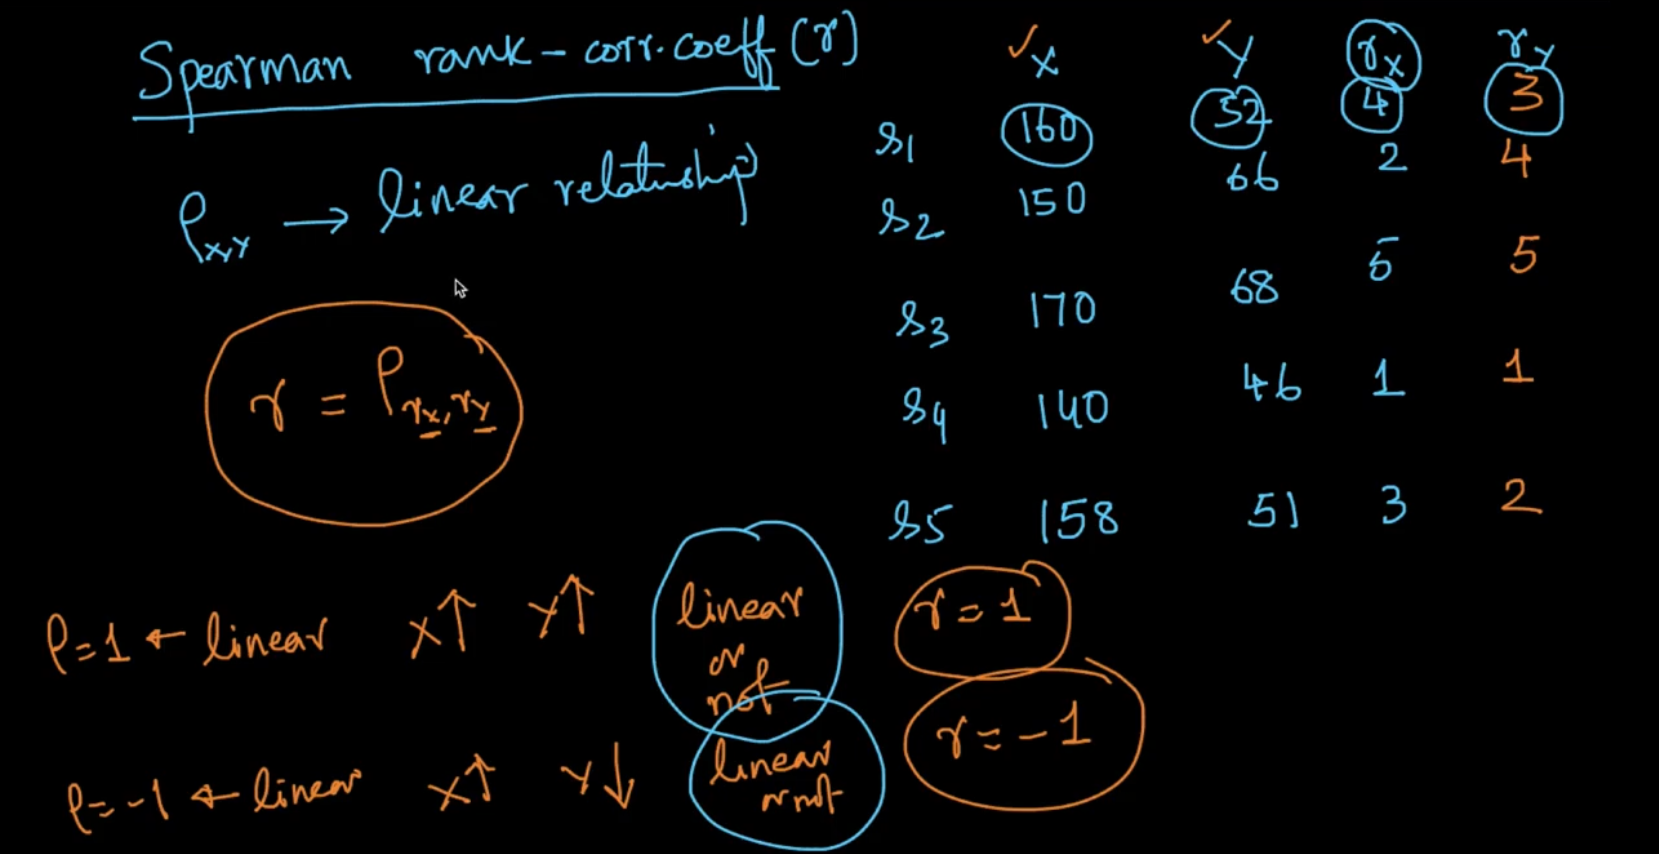 Spearman rank-corr.coeff (r)
ρx,y → linear relationship
r = ρrx,ry
✓X ✓Y rx ry
s1 160 52 4 3
s2 150 66 2 4
s3 170 68 5 5
s4 140 46 1 1
s5 158 51 3 2
ρ=1 ← linear X↑ Y↑ linear or not r=1
ρ=-1 ← linear X↑ Y↓ linear or not r=-1